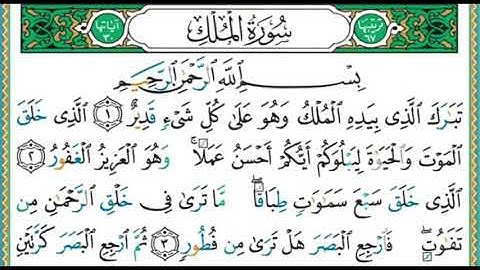 آياتها ٣٠ سُورَةُ الْمُلْكِ ترتيبها ٦٧
بِسْمِ اللَّهِ الرَّحْمَٰنِ الرَّحِيمِ
تَبَارَكَ الَّذِي بِيَدِهِ الْمُلْكُ وَهُوَ عَلَىٰ كُلِّ شَيْءٍ قَدِيرٌ ١ الَّذِي خَلَقَ
الْمَوْتَ وَالْحَيَوٰةَ لِيَبْلُوَكُمْ أَيُّكُمْ أَحْسَنُ عَمَلًا ۚ وَهُوَ الْعَزِيزُ الْغَفُورُ ٢
الَّذِي خَلَقَ سَبْعَ سَمَٰوَٰتٍ طِبَاقًا ۖ مَّا تَرَىٰ فِي خَلْقِ الرَّحْمَٰنِ مِن
تَفَٰوُتٍ ۖ فَارْجِعِ الْبَصَرَ هَلْ تَرَىٰ مِن فُطُورٍ ٣ ثُمَّ ارْجِعِ الْبَصَرَ كَرَّتَيْنِ